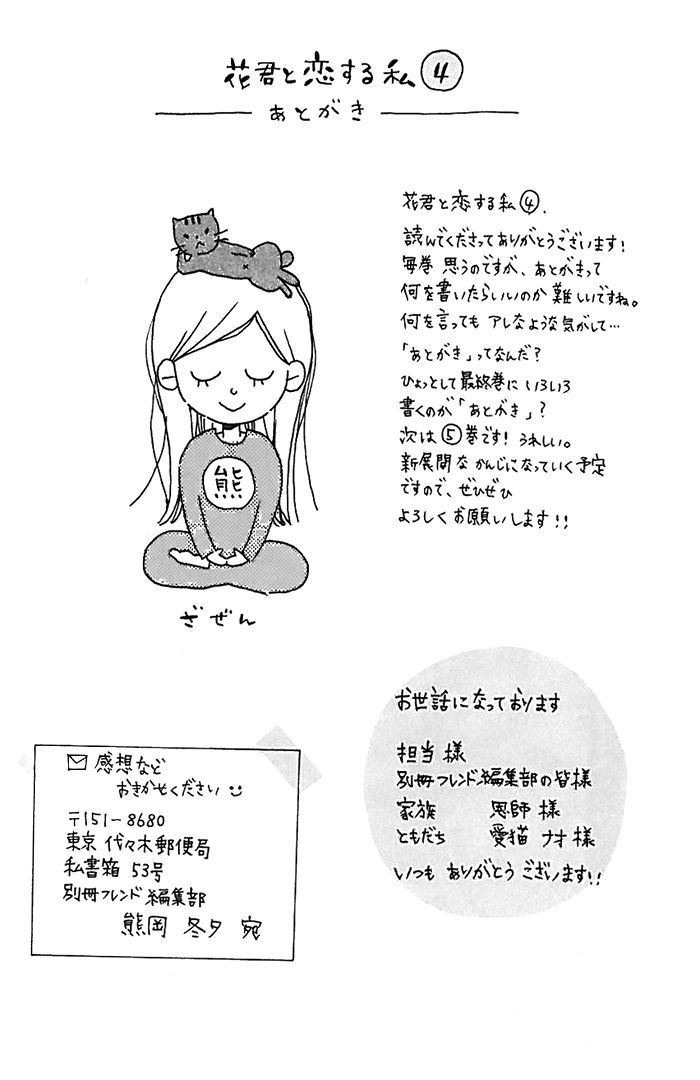 花君と恋する私 ④
あとがき
花君と恋する私④、
読んでくださってありがとうございます!
毎巻 思うのですが、あとがきって
何を書いたらいいのか 難しいですね。
何を言っても アレなような気がして…
「あとがき」ってなんだ?
ひょっとして最終巻に いろいろ
書くのが「あとがき」?
次は⑤巻です! うれしい。
新展開な かんじになっていく予定
ですので、ぜひぜひ
よろしくお願いします!!
熊
ざぜん
感想など
おきかせください
〒151-8680
東京 代々木郵便局
私書箱 53号
別冊フレンド編集部
熊岡 冬夕 宛
お世話になっております
担当 様
別冊フレンド編集部の皆様
家族 恩師 様
ともだち 愛猫 ナオ 様
いつも ありがとう ございます!!